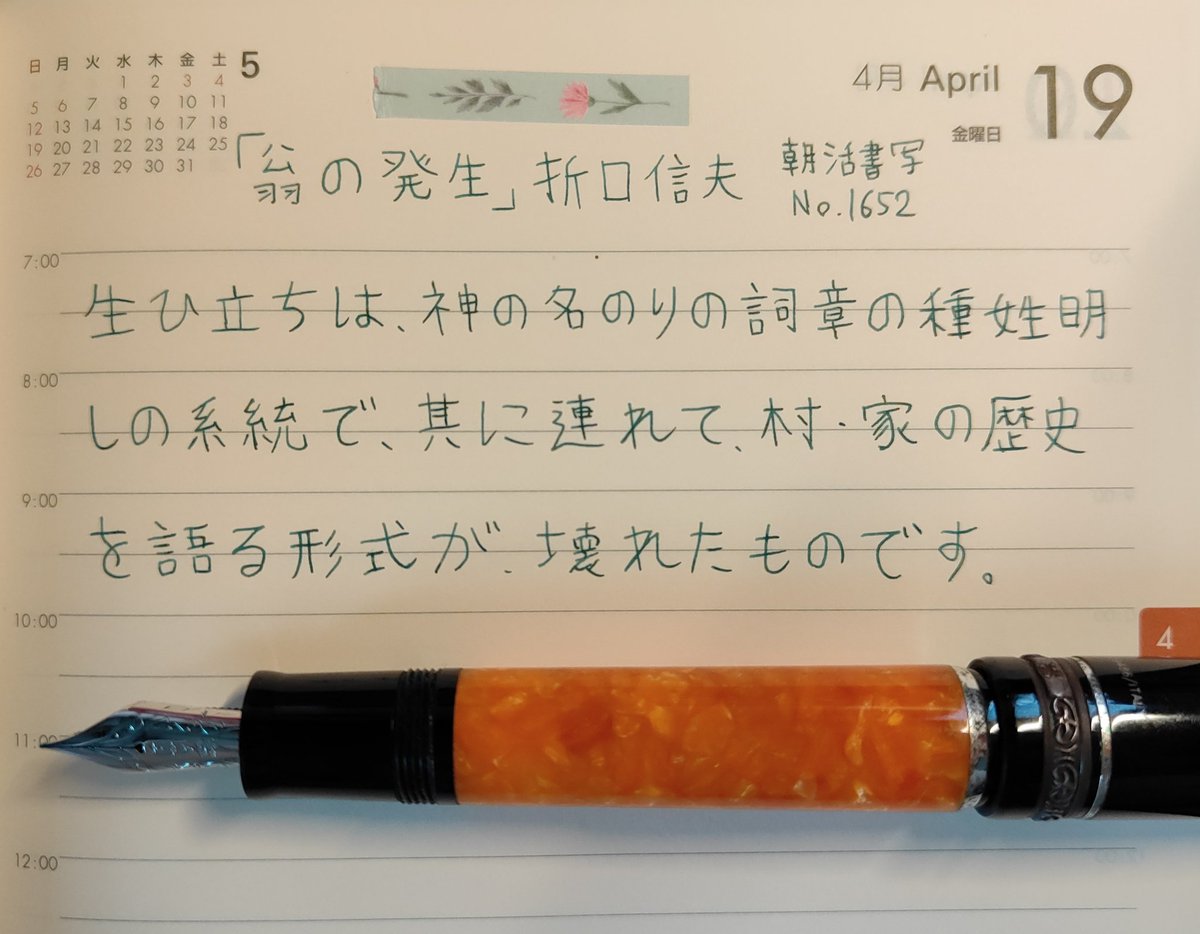 日 月 火 水 木 金 土 5
1 2 3 4
5 6 7 8 9 10 11
12 13 14 15 16 17 18
19 20 21 22 23 24 25
26 27 28 29 30 31
4月 April 19
金曜日
「翁の発生」折口信夫
朝活書写
No.1652
7:00
生ひ立ちは、神の名のりの詞章の種姓明
8:00
しの系統で、其に連れて、村・家の歴史
9:00
を語る形式が、壊れたものです。
10:00
4
11:00
12:00